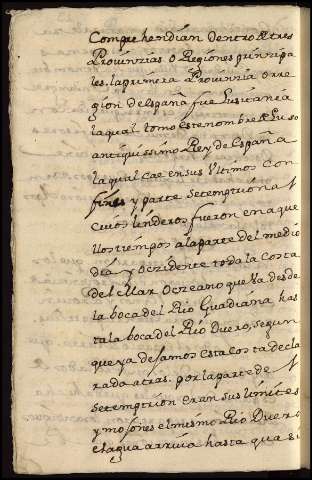 Comprehendian dentro de tres
Provinzias o Regiones prinzipa
les. la primera Provinzia o rre
gion de España fue Lusitanea
la qual tomo este nombre de Luso
antiquissimo Rey de España
la qual cae en sus Ultimos con
fines y parte Setemptriona l
cuios linderos fueron en aque
llos tiempos a la parte del medio
dia y Oczidente toda la Costa
del Mar Oczeano que Va desde
la boca del Rio Guadiana has
ta la boca del Rio Duero, segun
que ya dejamos esta Costa decla
rada atras. por la parte de l
Setemptrion eran sus limites
y mojones el mismo Rio Duero
el agua arriua hasta